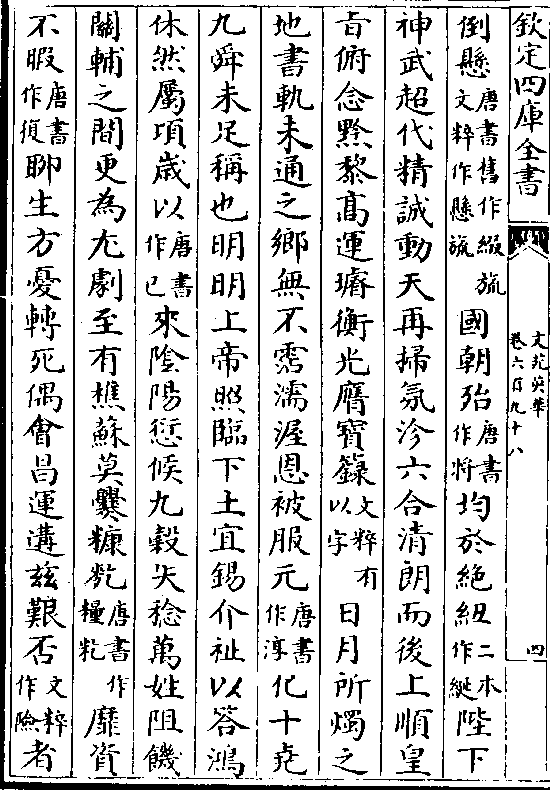 欽定四庫全書
文苑英華
卷六百九十八
四
倒懸唐書舊作綴旒文粹作懸旒國朝殆唐書作將均於絶紐二本作綖陛下
神武超代精誠動天再掃氛沴六合清朗而後上順皇
旨俯念黔黎髙運璿衡光膺寳籙文粹有以字日月所燭之
地書軌未通之鄉無不霑濡渥恩被服元唐書作淳化十堯
九舜未足稱也明明上帝照臨下土宜錫介祉以答鴻
休然屬項歳以唐書作已來隂陽愆候九穀失稔萬姓阻饑
關輔之間更為尤劇至有樵蘇莫爨糠籺唐書作糧籺靡資
不暇唐書作復聊生方憂轉死偶㑹昌運遘兹艱否文粹作險者